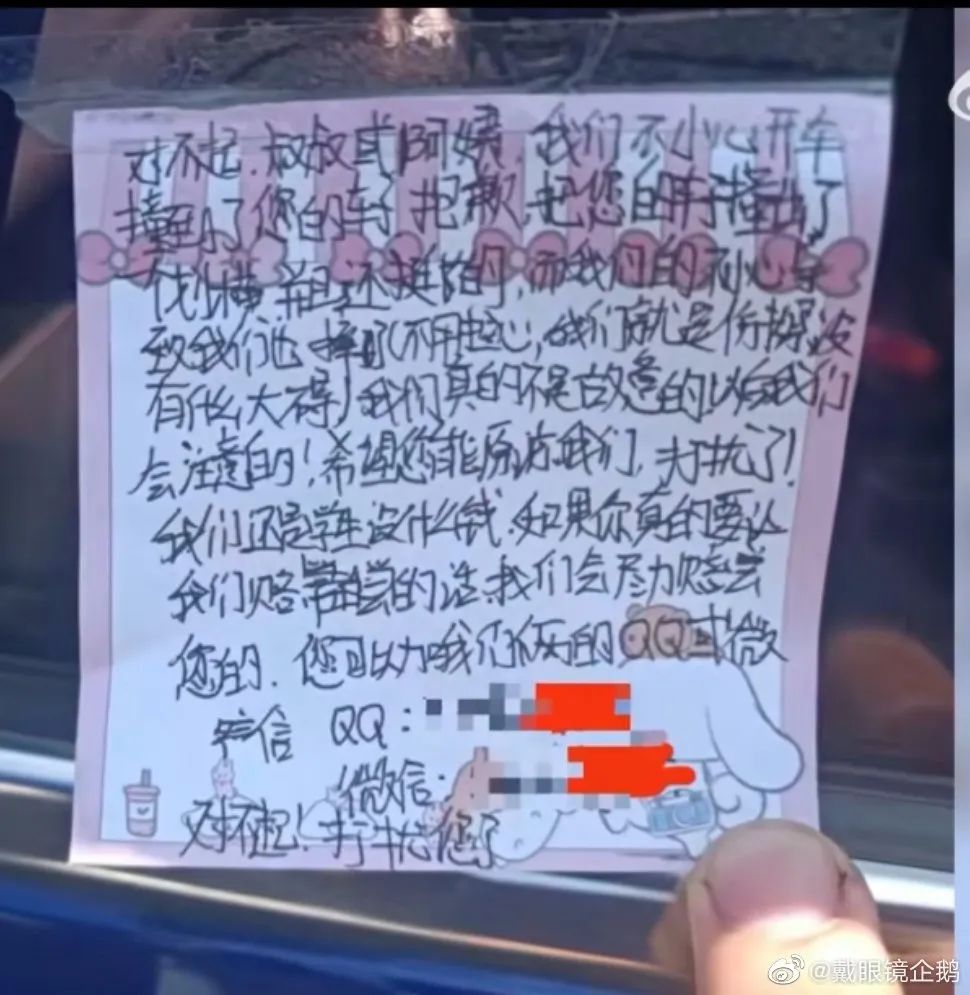 对不起.叔叔或阿姨.我们不小心开车
撞到了您的车子抱歉,把您的车子撞出了
并且还挺长的,而我们的不小心导
致我们也摔了(不用担心,我们就是伤
有什么大碍)我们真的不是故意的!以后我们
会注意的!希望您能原谅我们,打扰了!
我们还是学生没什么钱.如果你真的要让
我们赔偿的话.我们会尽力赔偿
您的.您可以加我们俩的QQ或微
信 QQ:
微信:
对不起!打扰您了
@戴眼镜企鹅